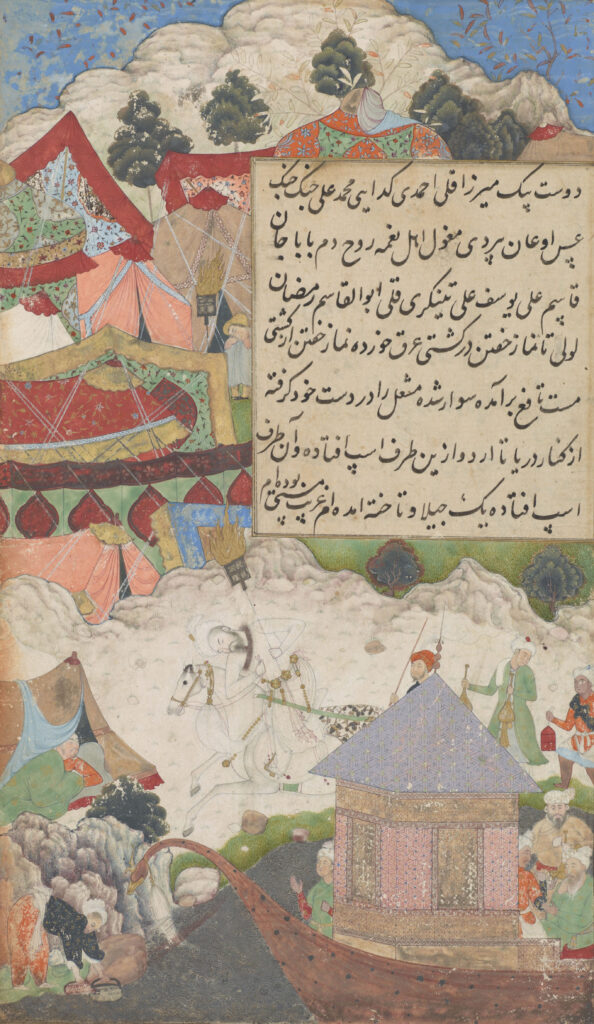 دوست بیک میرزا قلی احمدی کدایی محمد علی جنک جنک
عس اوغان بردی مغول اهل نغمه روح دم بابا جان
قاسم علی یوسف علی تینکری قلی ابوالقاسم رمضان
لولی تا نماز خفتن در کشتی عرق خورده نماز خفتن از کشتی
مست تافغ برآمده سوار شده مشعل را در دست خود کرفته
از کنار دریا تا اردو ازین طرف اسپ افتاده و آن طرف
اسپ افتاده یک جیلاو تاخته آمده ام غریب مستی بوده ام